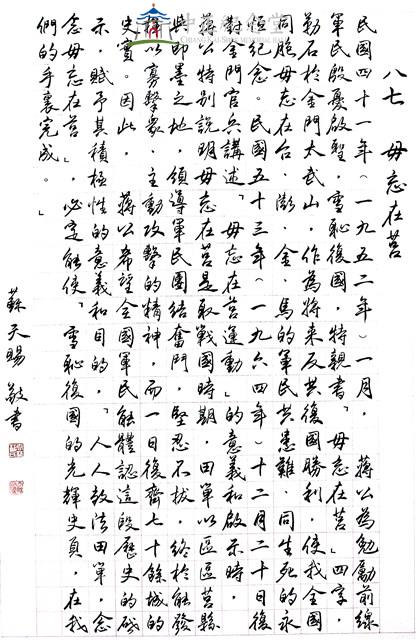 八七 毋忘在莒
民國四十一年(一九五二年)一月, 蔣公為勉勵前線
軍民殷憂啟聖,雪恥復國,特親書「毋忘在莒」四字,
勒石於金門太武山,作為將來反共復國勝利,使我全國
同胞毋忘在台、澎、金、馬的軍民共患難、同生死的永
恒紀念。民國五十三年(一九六四年)十二月二十日復
對金門官兵講述「毋忘在莒運動」的意義和啟示時,
蔣公特別說明毋忘在莒是取戰國時期,田單以區區莒縣
與即墨之地,領導軍民團結奮鬥,堅忍不拔,終於能發
揮以寡擊眾、主動攻擊的精神,而一日復齊七十餘城的
史實。因此, 蔣公希望全國軍民「能體認這段歷史的啟
示,賦予其積極性的意義和目的,人人效法田單,念
念毋忘在莒」,必定能使「雪恥復國的光輝史頁,在我
們的手裏完成。」
蘇天賜 敬書